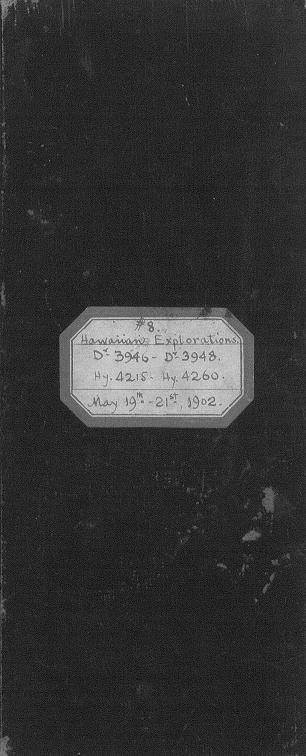 #8.
Hawaiian Explorations.
Dr. 3946 - Dr. 3948.
Hy. 4215 - Hy. 4260.
May 19th - 21st, 1902.